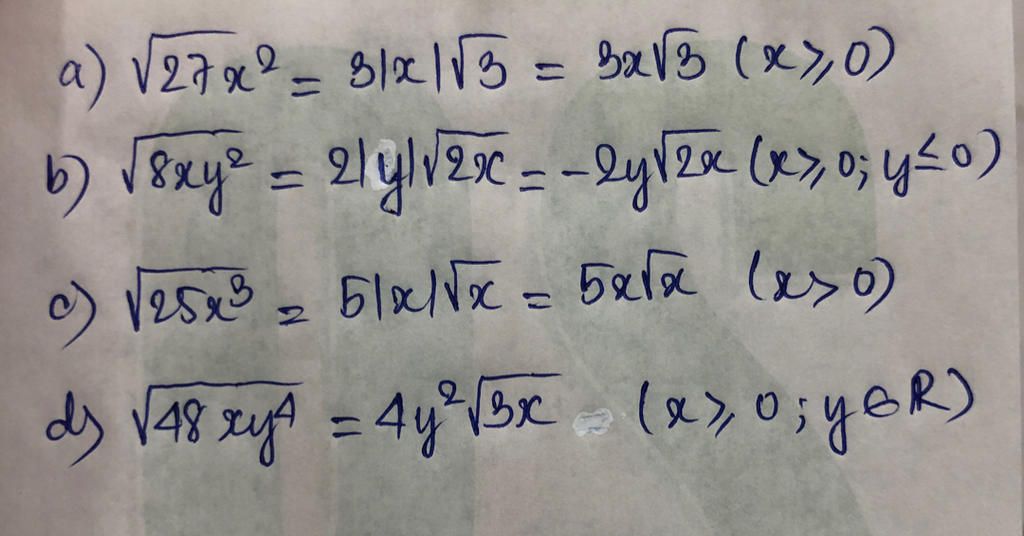 a) √27x² = 3|x|√3 = 3x√3 (x ≥ 0)
b) √8xy² = 2|y|√2x = -2y√2x (x ≥ 0; y ≤ 0)
c) √25x³ = 5|x|√x = 5x√x (x > 0)
d) √48xy⁴ = 4y²√3x (x ≥ 0; y ∈ R)